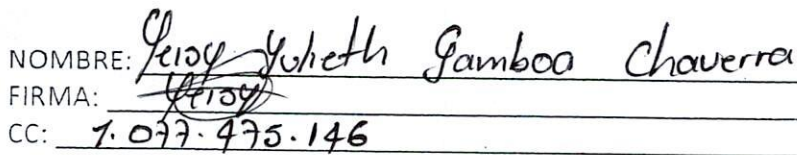 NOMBRE: Yeisy Yulieth Gamboa Chaverra
FIRMA: Yeisy
CC: 1.077.475.146